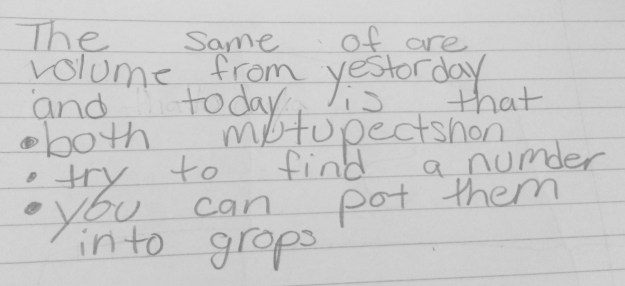 The same of are
volume from yestorday
and today is that
• both mutupectshon
• try to find a numder
• you can pot them
into grops